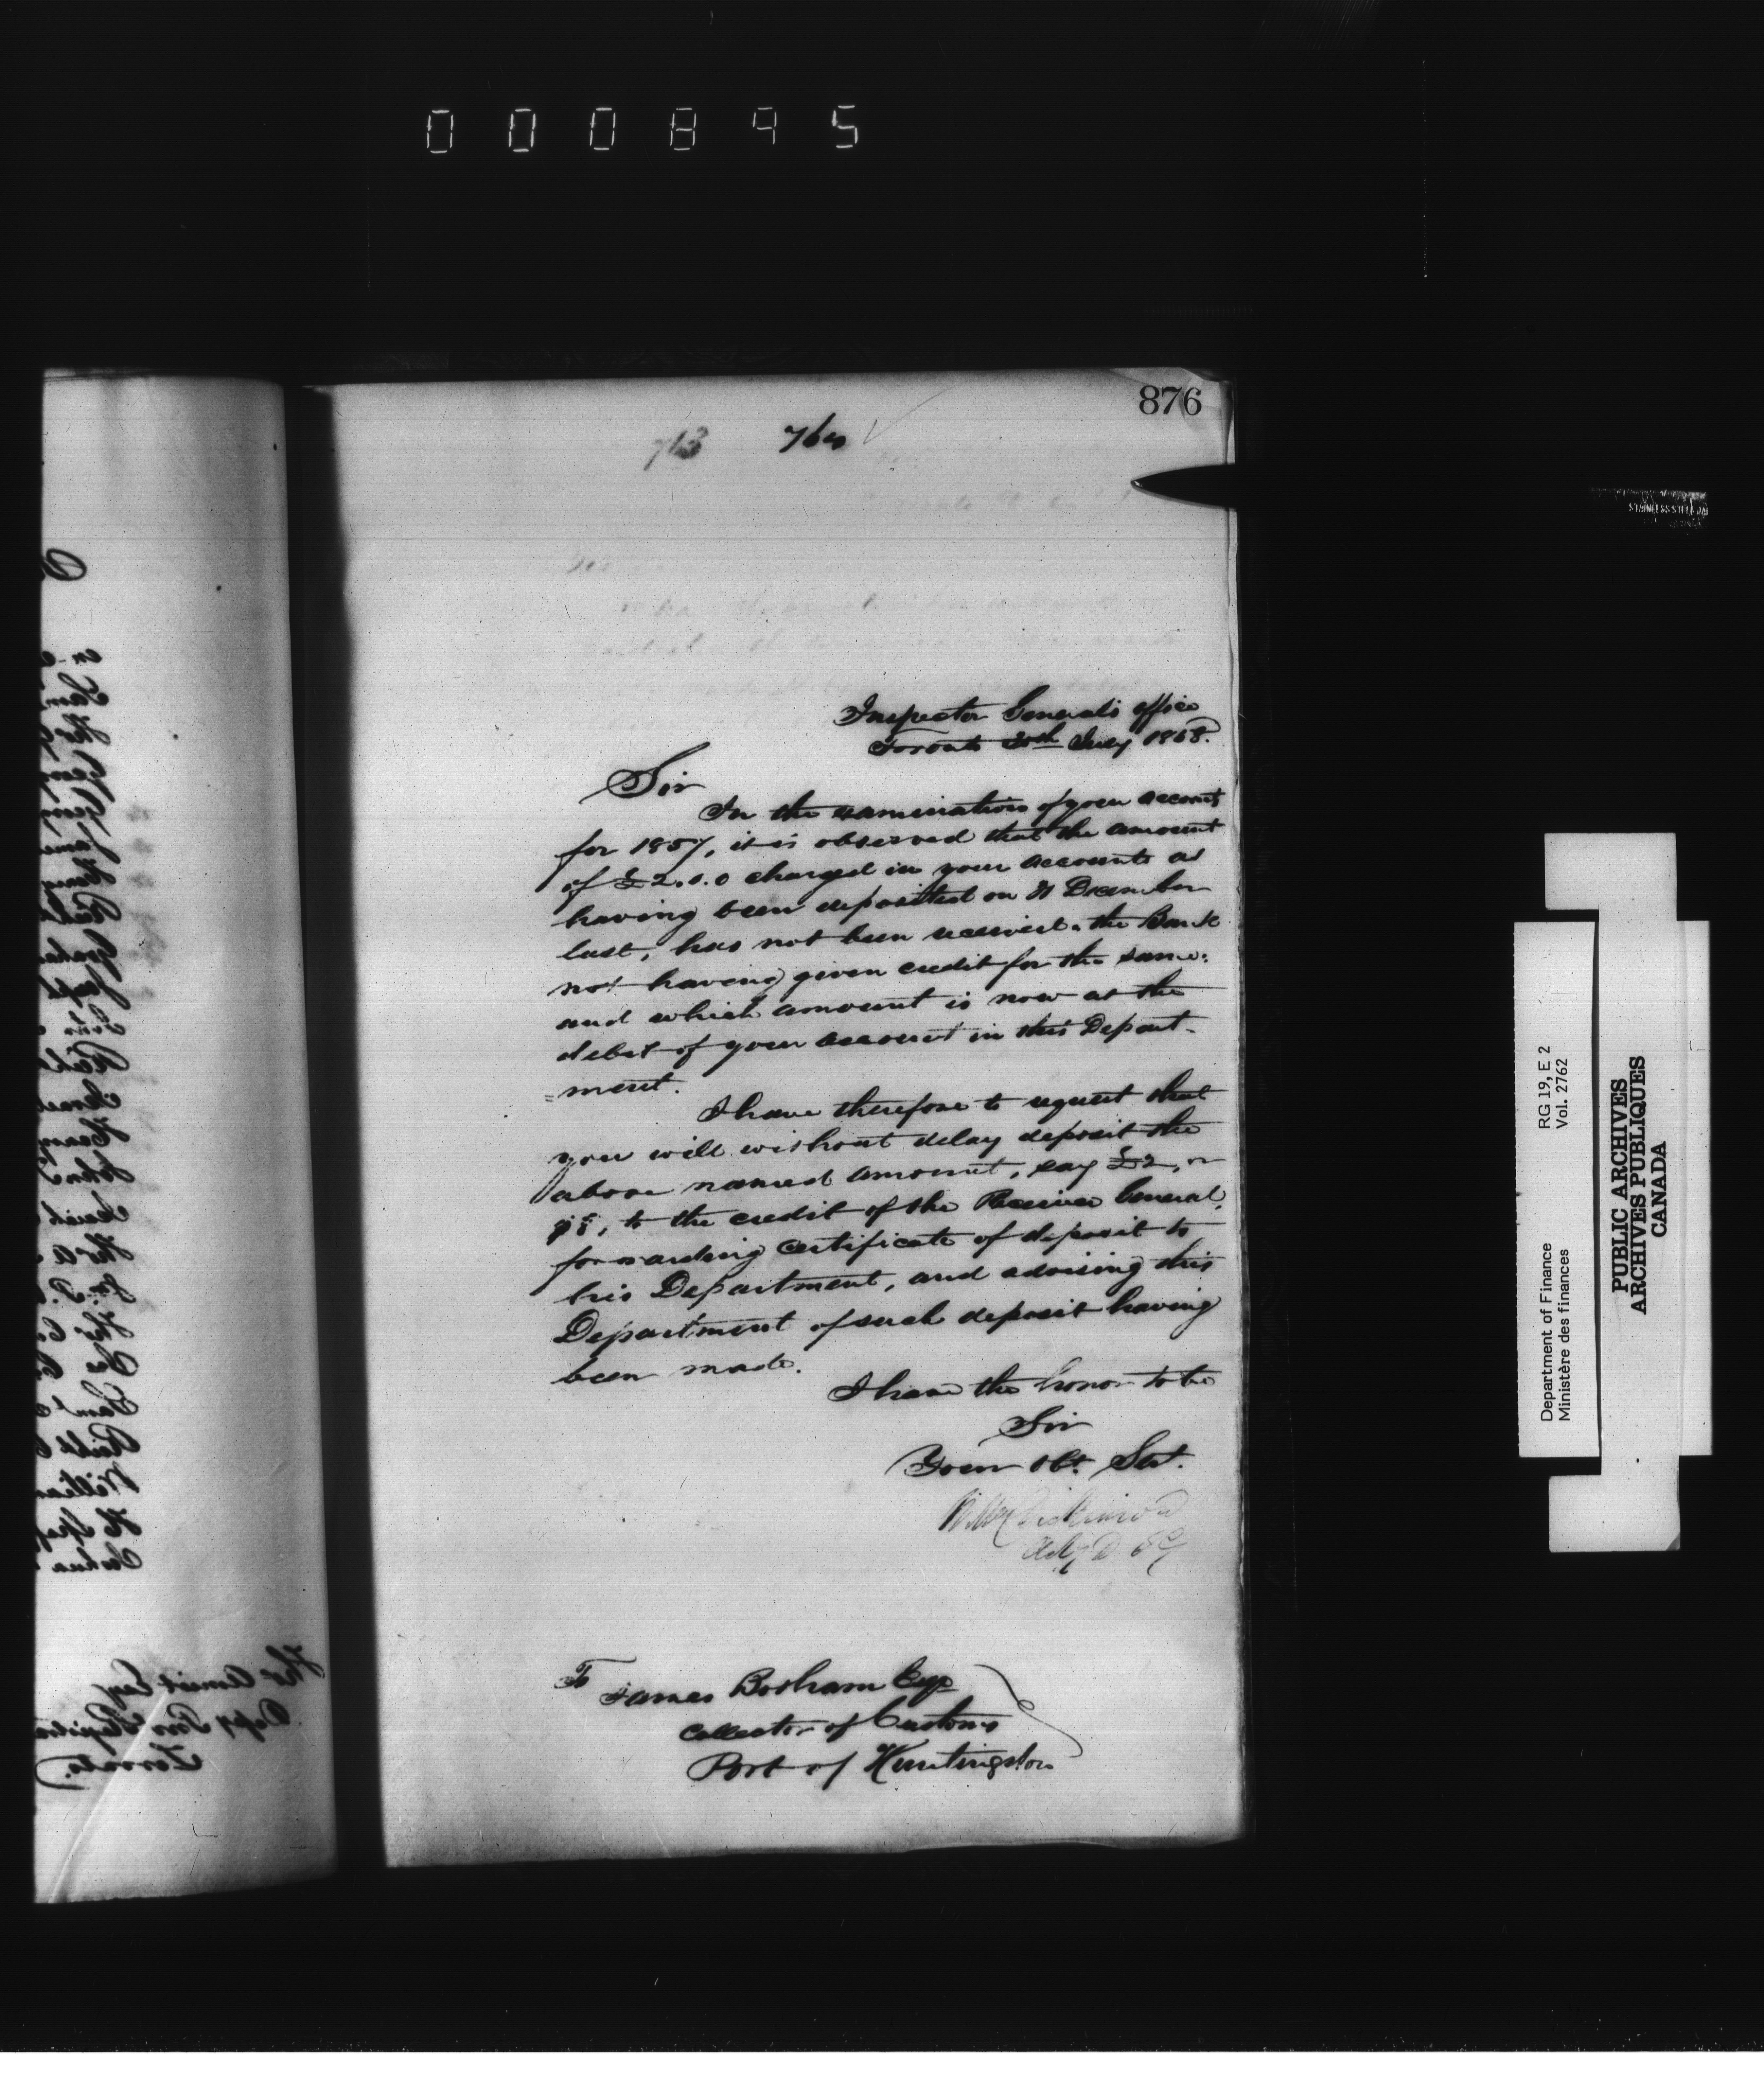 000895
876
713 760
Inspector General's Office
Toronto 20th July 1858.
Sir
In the examination of your accounts
for 1857, it is observed that the amount
of £2.0.0 charged in your accounts as
having been deposited on 31 December
last, has not been received, the Bank
not having given credit for the same:
and which amount is now at the
debit of your account in this Depart-
=ment.
I have therefore to request that
you will without delay deposit the
above named amount, say £2, or
$8, to the credit of the Receiver General,
forwarding certificate of deposit to
his Department, and advising this
Department of such deposit having
been made.
I have the honor to be
Sir
Your Obt. Sert.
Wm Dickinson
To
James Botham Esqe
Collector of Customs
Port of Huntingdon
STAINLESS STEEL
Department of Finance RG 19, E 2
Ministère des finances Vol. 2762
PUBLIC ARCHIVES
ARCHIVES PUBLIQUES
CANADA